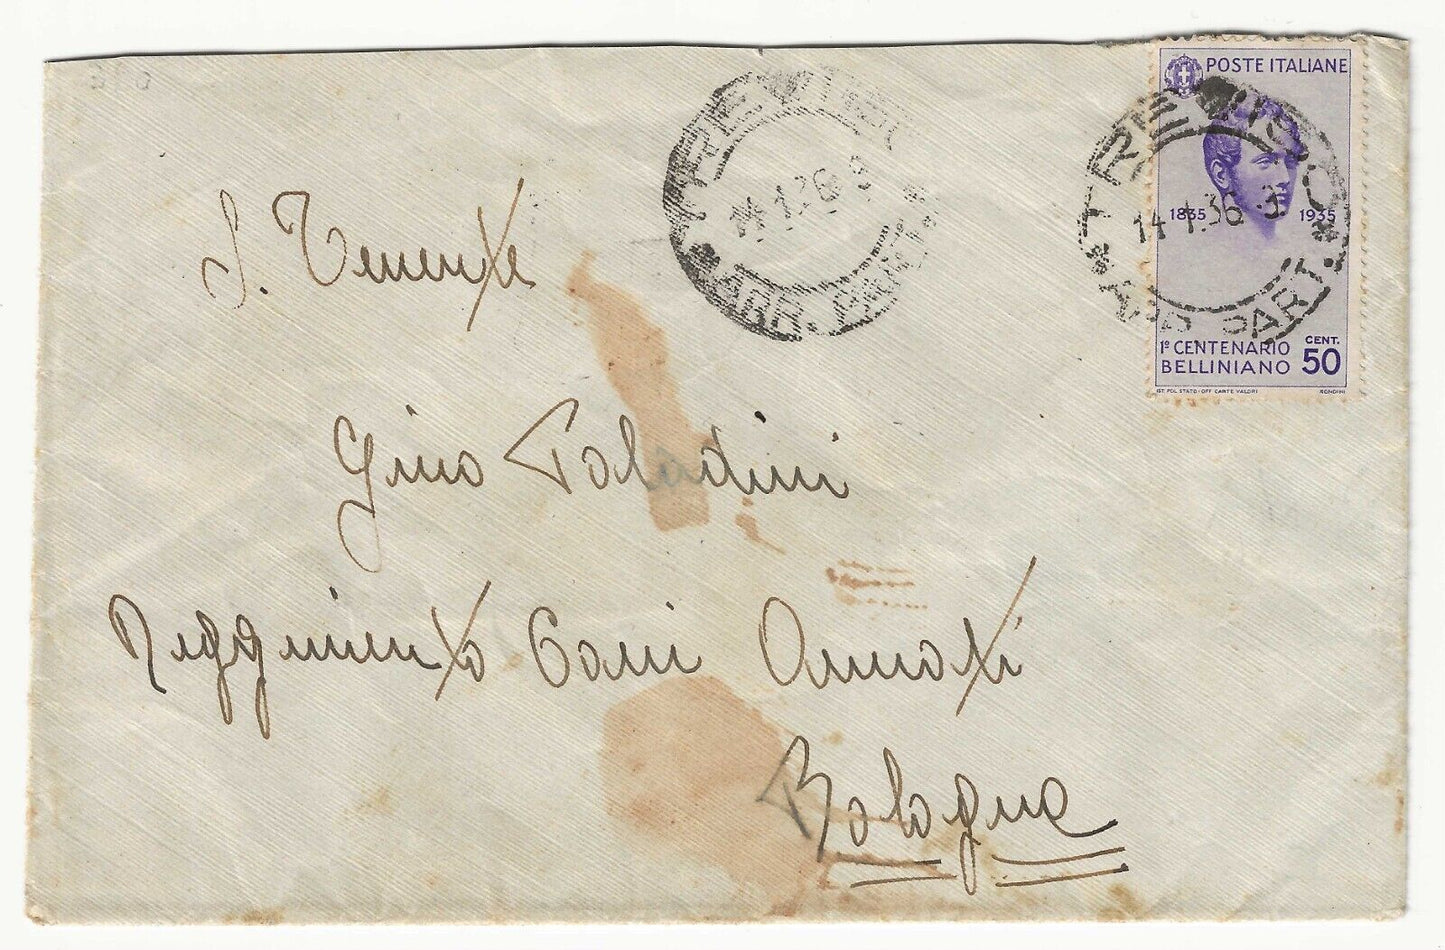 POSTE ITALIANE
TREVISO
14.1.36 9
* ARR. PART. *
TREVISO
14.1.36
* ARR. PART. *
1835 1935
1º CENTENARIO
BELLINIANO
CENT.
50
IST. POL. STATO-OFF. CARTE VALORI
RONDINI
S. Tenente
Gino Paladini
Reggimento Carri Armati
Bologna